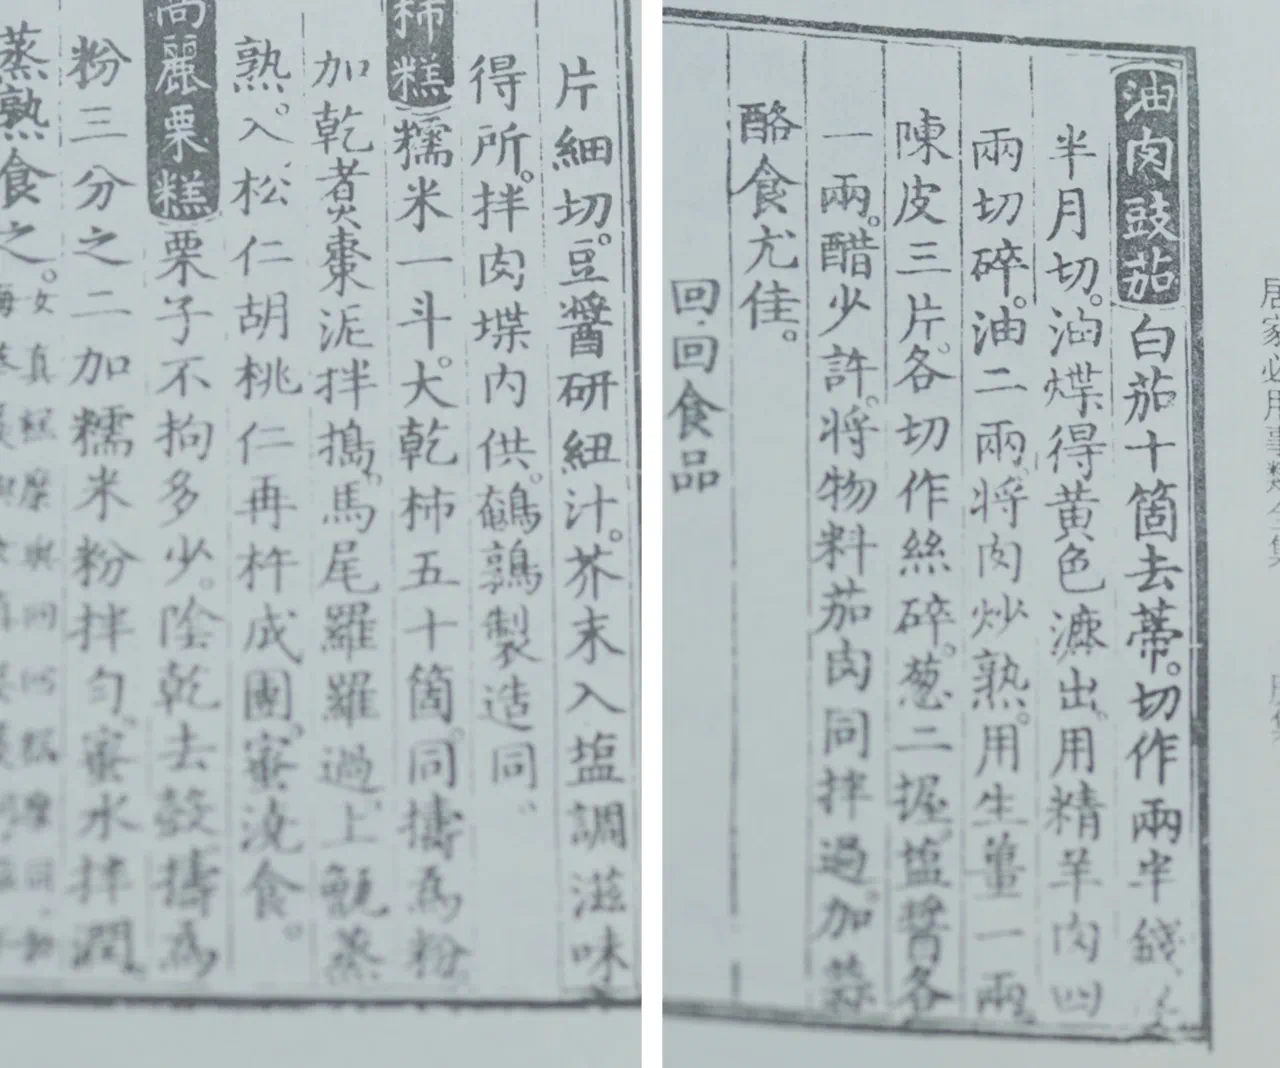 居家必用事類全集
油肉豉茄 白茄十箇去蒂。切作兩半
半月切。油煠得黄色漉出。用精羊肉四
兩切碎。油二兩。將肉炒熟。用生薑一兩
陳皮三片。各切作絲碎。葱二握。塩醬各
一兩。醋少許。將物料茄肉同拌過。加蒜
酪食尤佳。
回回食品
片細切。豆醬研紐汁。芥末入塩調滋味
得所。拌肉堞内供。鵪鶉製造同、
柿糕 糯米一斗。大乾柿五十箇。同擣爲粉
加乾煮棗泥拌搗。馬尾羅羅過。上甑蒸
熟。入松仁胡桃仁再杵成團。蜜澆食。
高麗栗糕 栗子不拘多少。陰乾去殼擣爲
粉三分之二加糯米粉拌匀。蜜水拌潤。
蒸熟食之。女真糕糜與回回糕糜同